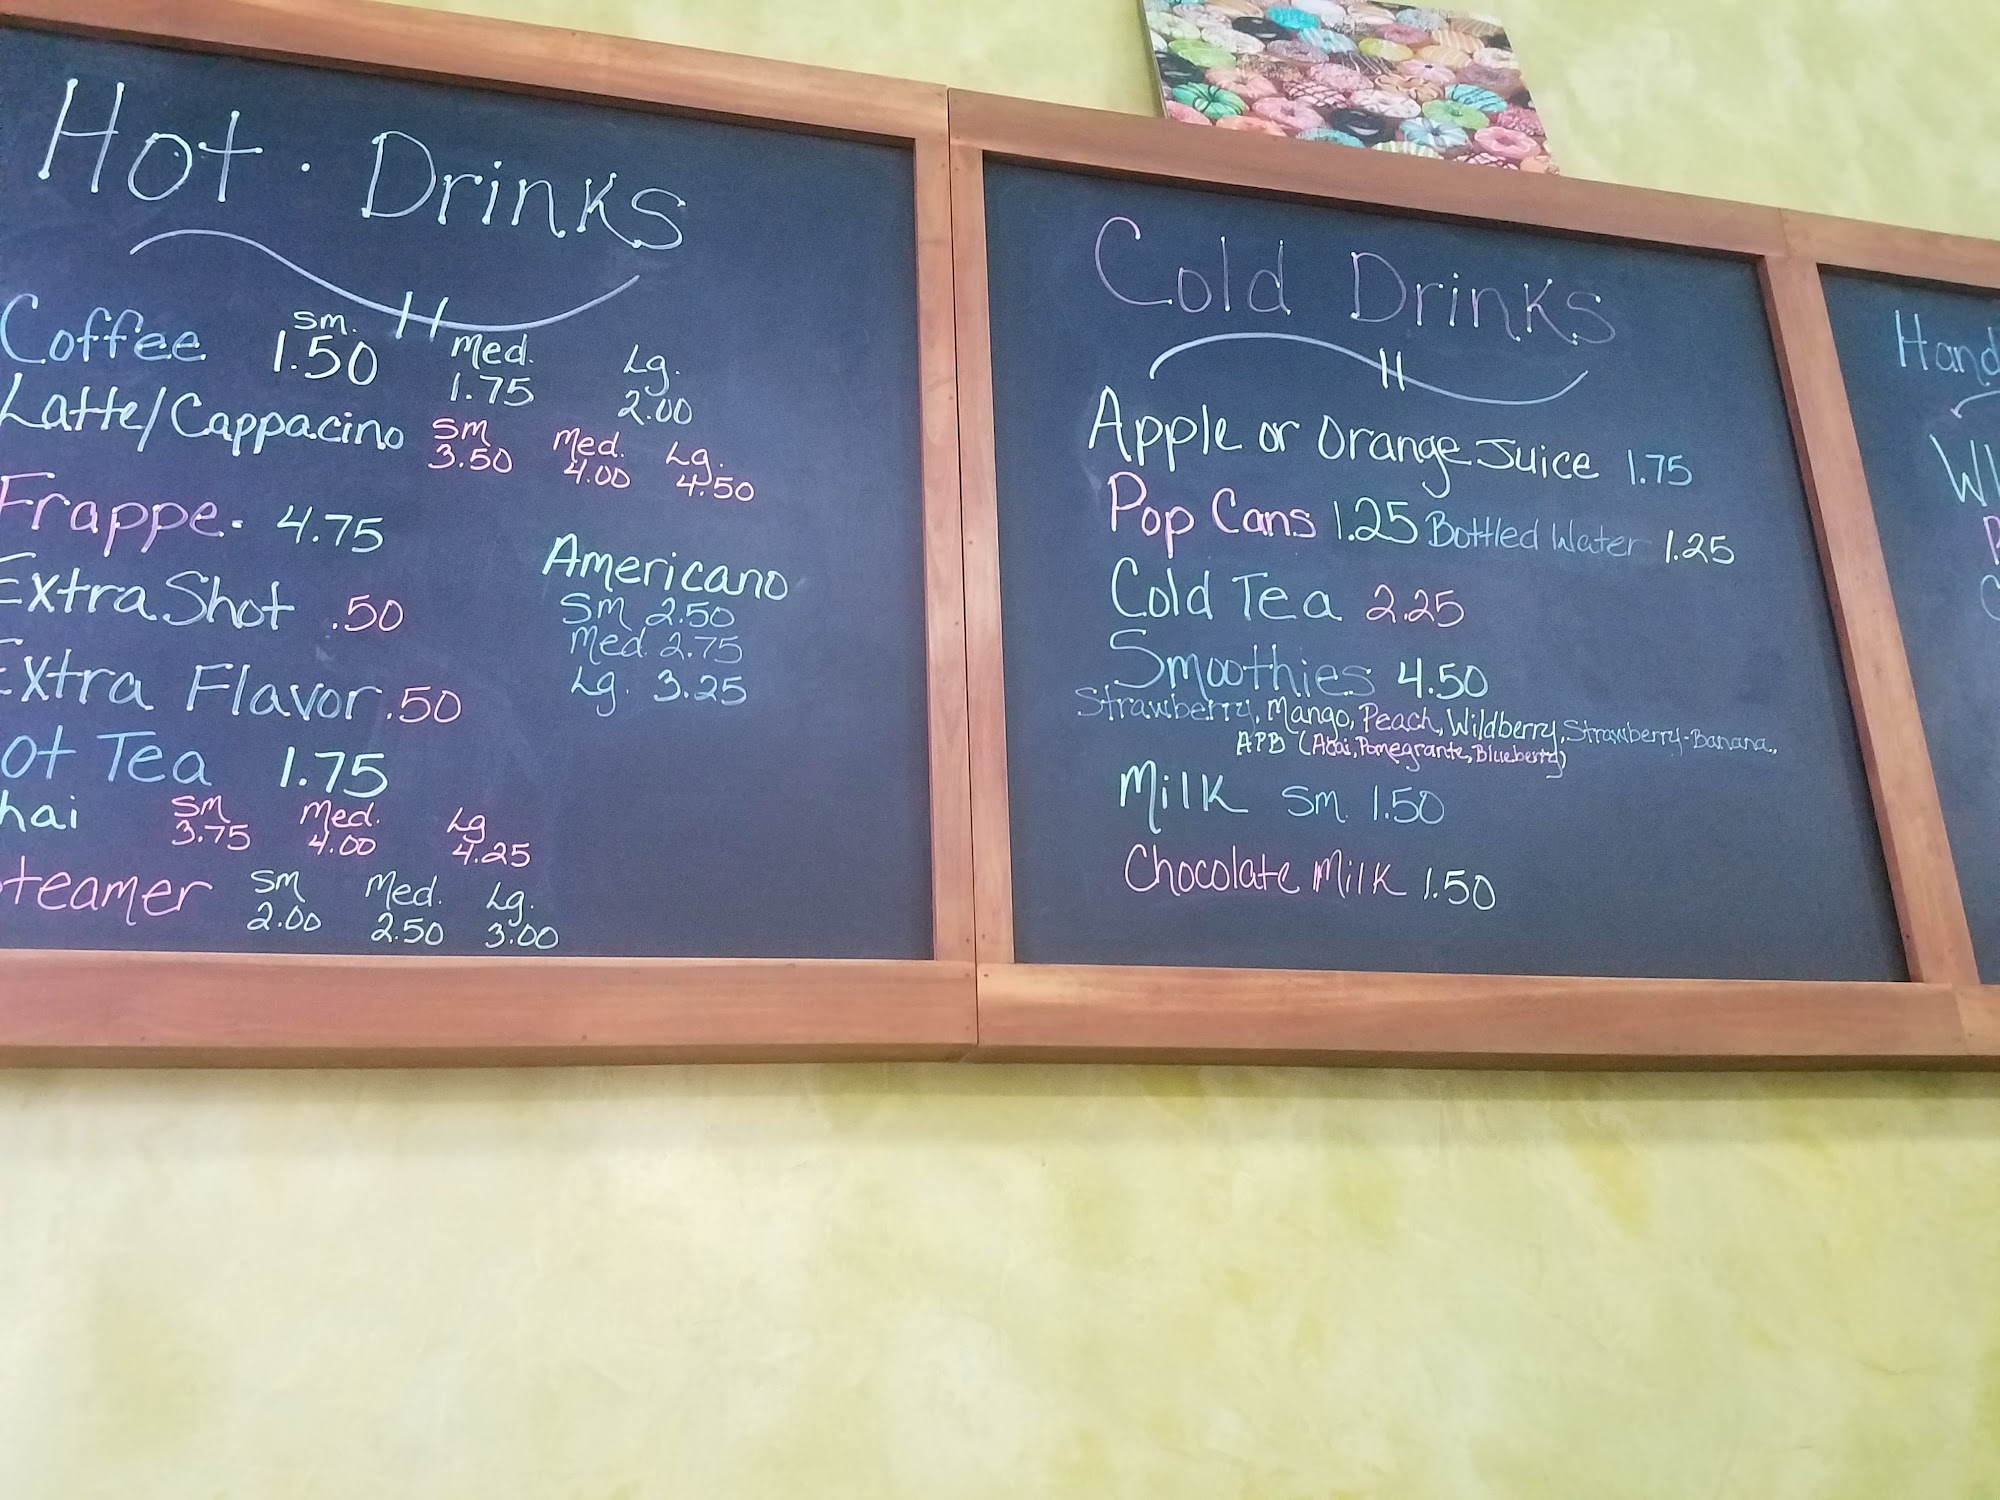 Hot · Drinks
Coffee sm. 1.50 Med. 1.75 Lg. 2.00
Latte/Cappacino sm 3.50 Med. 4.00 Lg. 4.50
Frappe. 4.75
Extra Shot .50
Americano
Sm 2.50
Med. 2.75
Lg. 3.25
Extra Flavor .50
ot Tea 1.75
hai Sm 3.75 Med. 4.00 Lg 4.25
teamer Sm 2.00 Med. 2.50 Lg. 3.00
Cold Drinks
Apple or Orange Juice 1.75
Pop Cans 1.25 Bottled Water 1.25
Cold Tea 2.25
Smoothies 4.50
Strawberry, Mango, Peach, Wildberry, Strawberry-Banana,
APB (Acai, Pomegrante, Blueberry)
Milk Sm. 1.50
Chocolate Milk 1.50
Hand